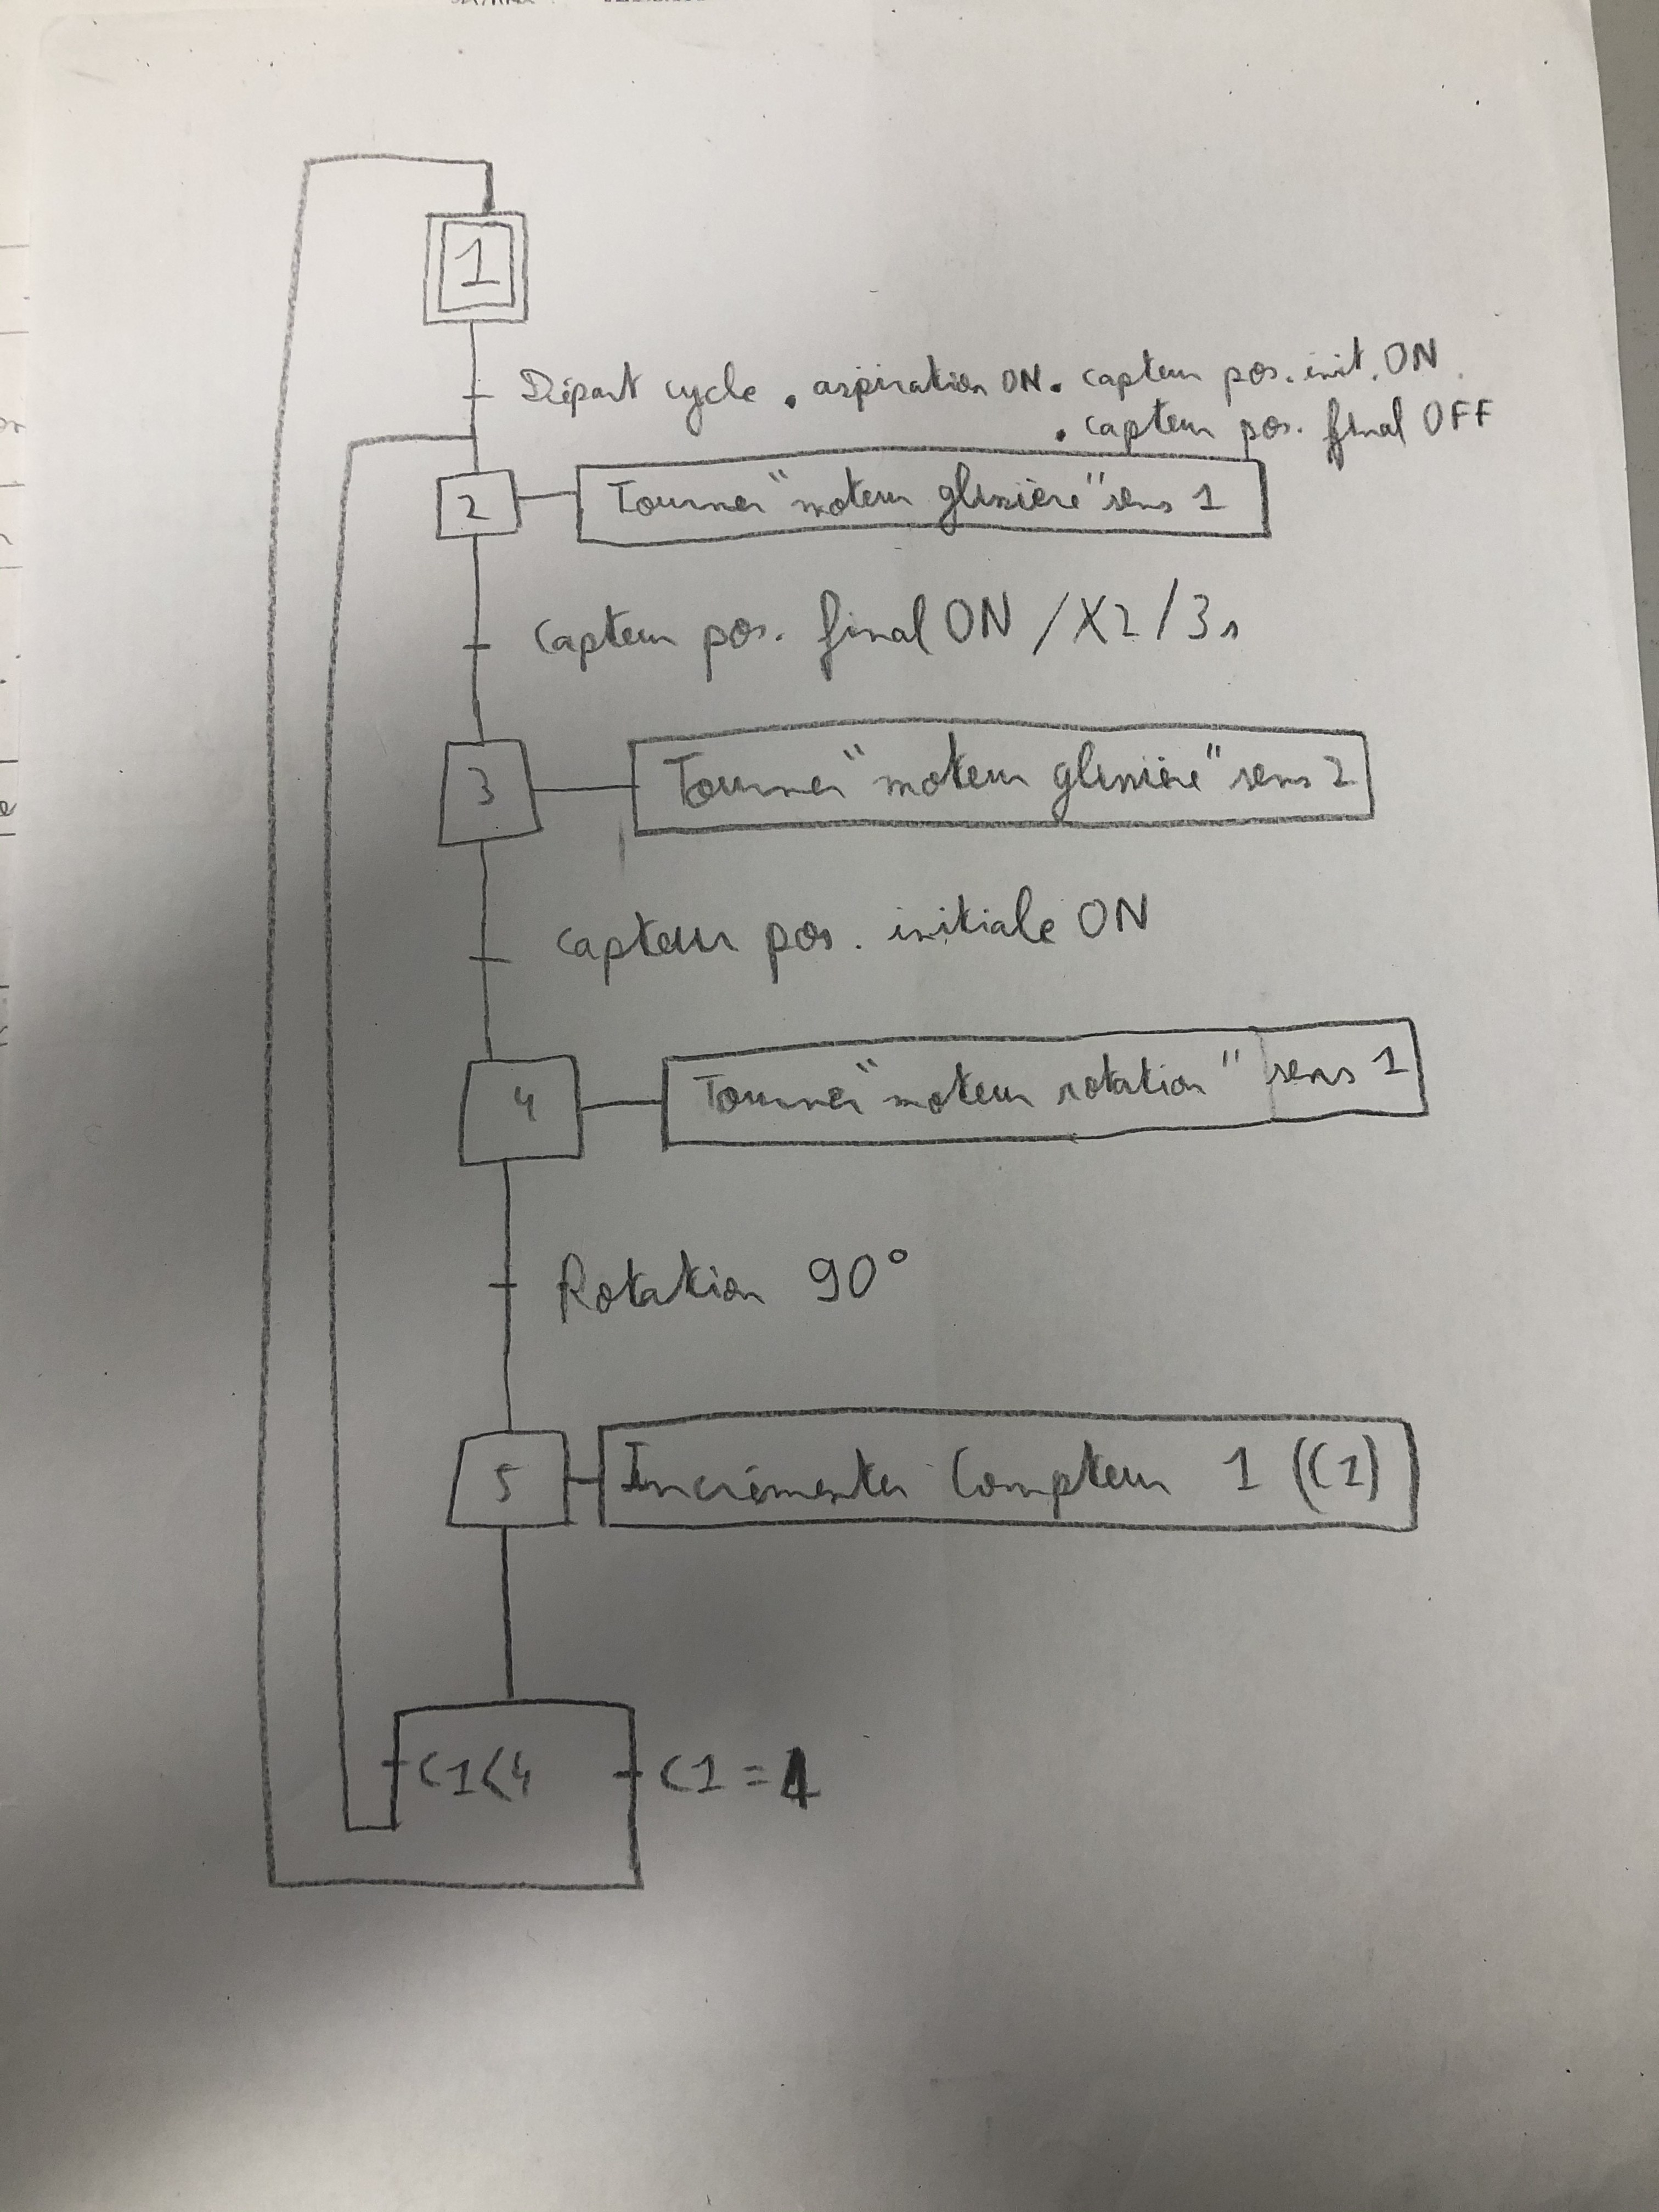 1
Départ cycle . aspiration ON . capteur pos. init. ON .
. capteur pos. final OFF
2 Tourner "moteur glissière" sens 1
capteur pos. final ON /X2/3s
3 Tourner "moteur glissière" sens 2
capteur pos. initiale ON
4 Tourner "moteur rotation" sens 1
Rotation 90°
5 Incrémenter Compteur 1 (C1)
C1<4 C1 = 4